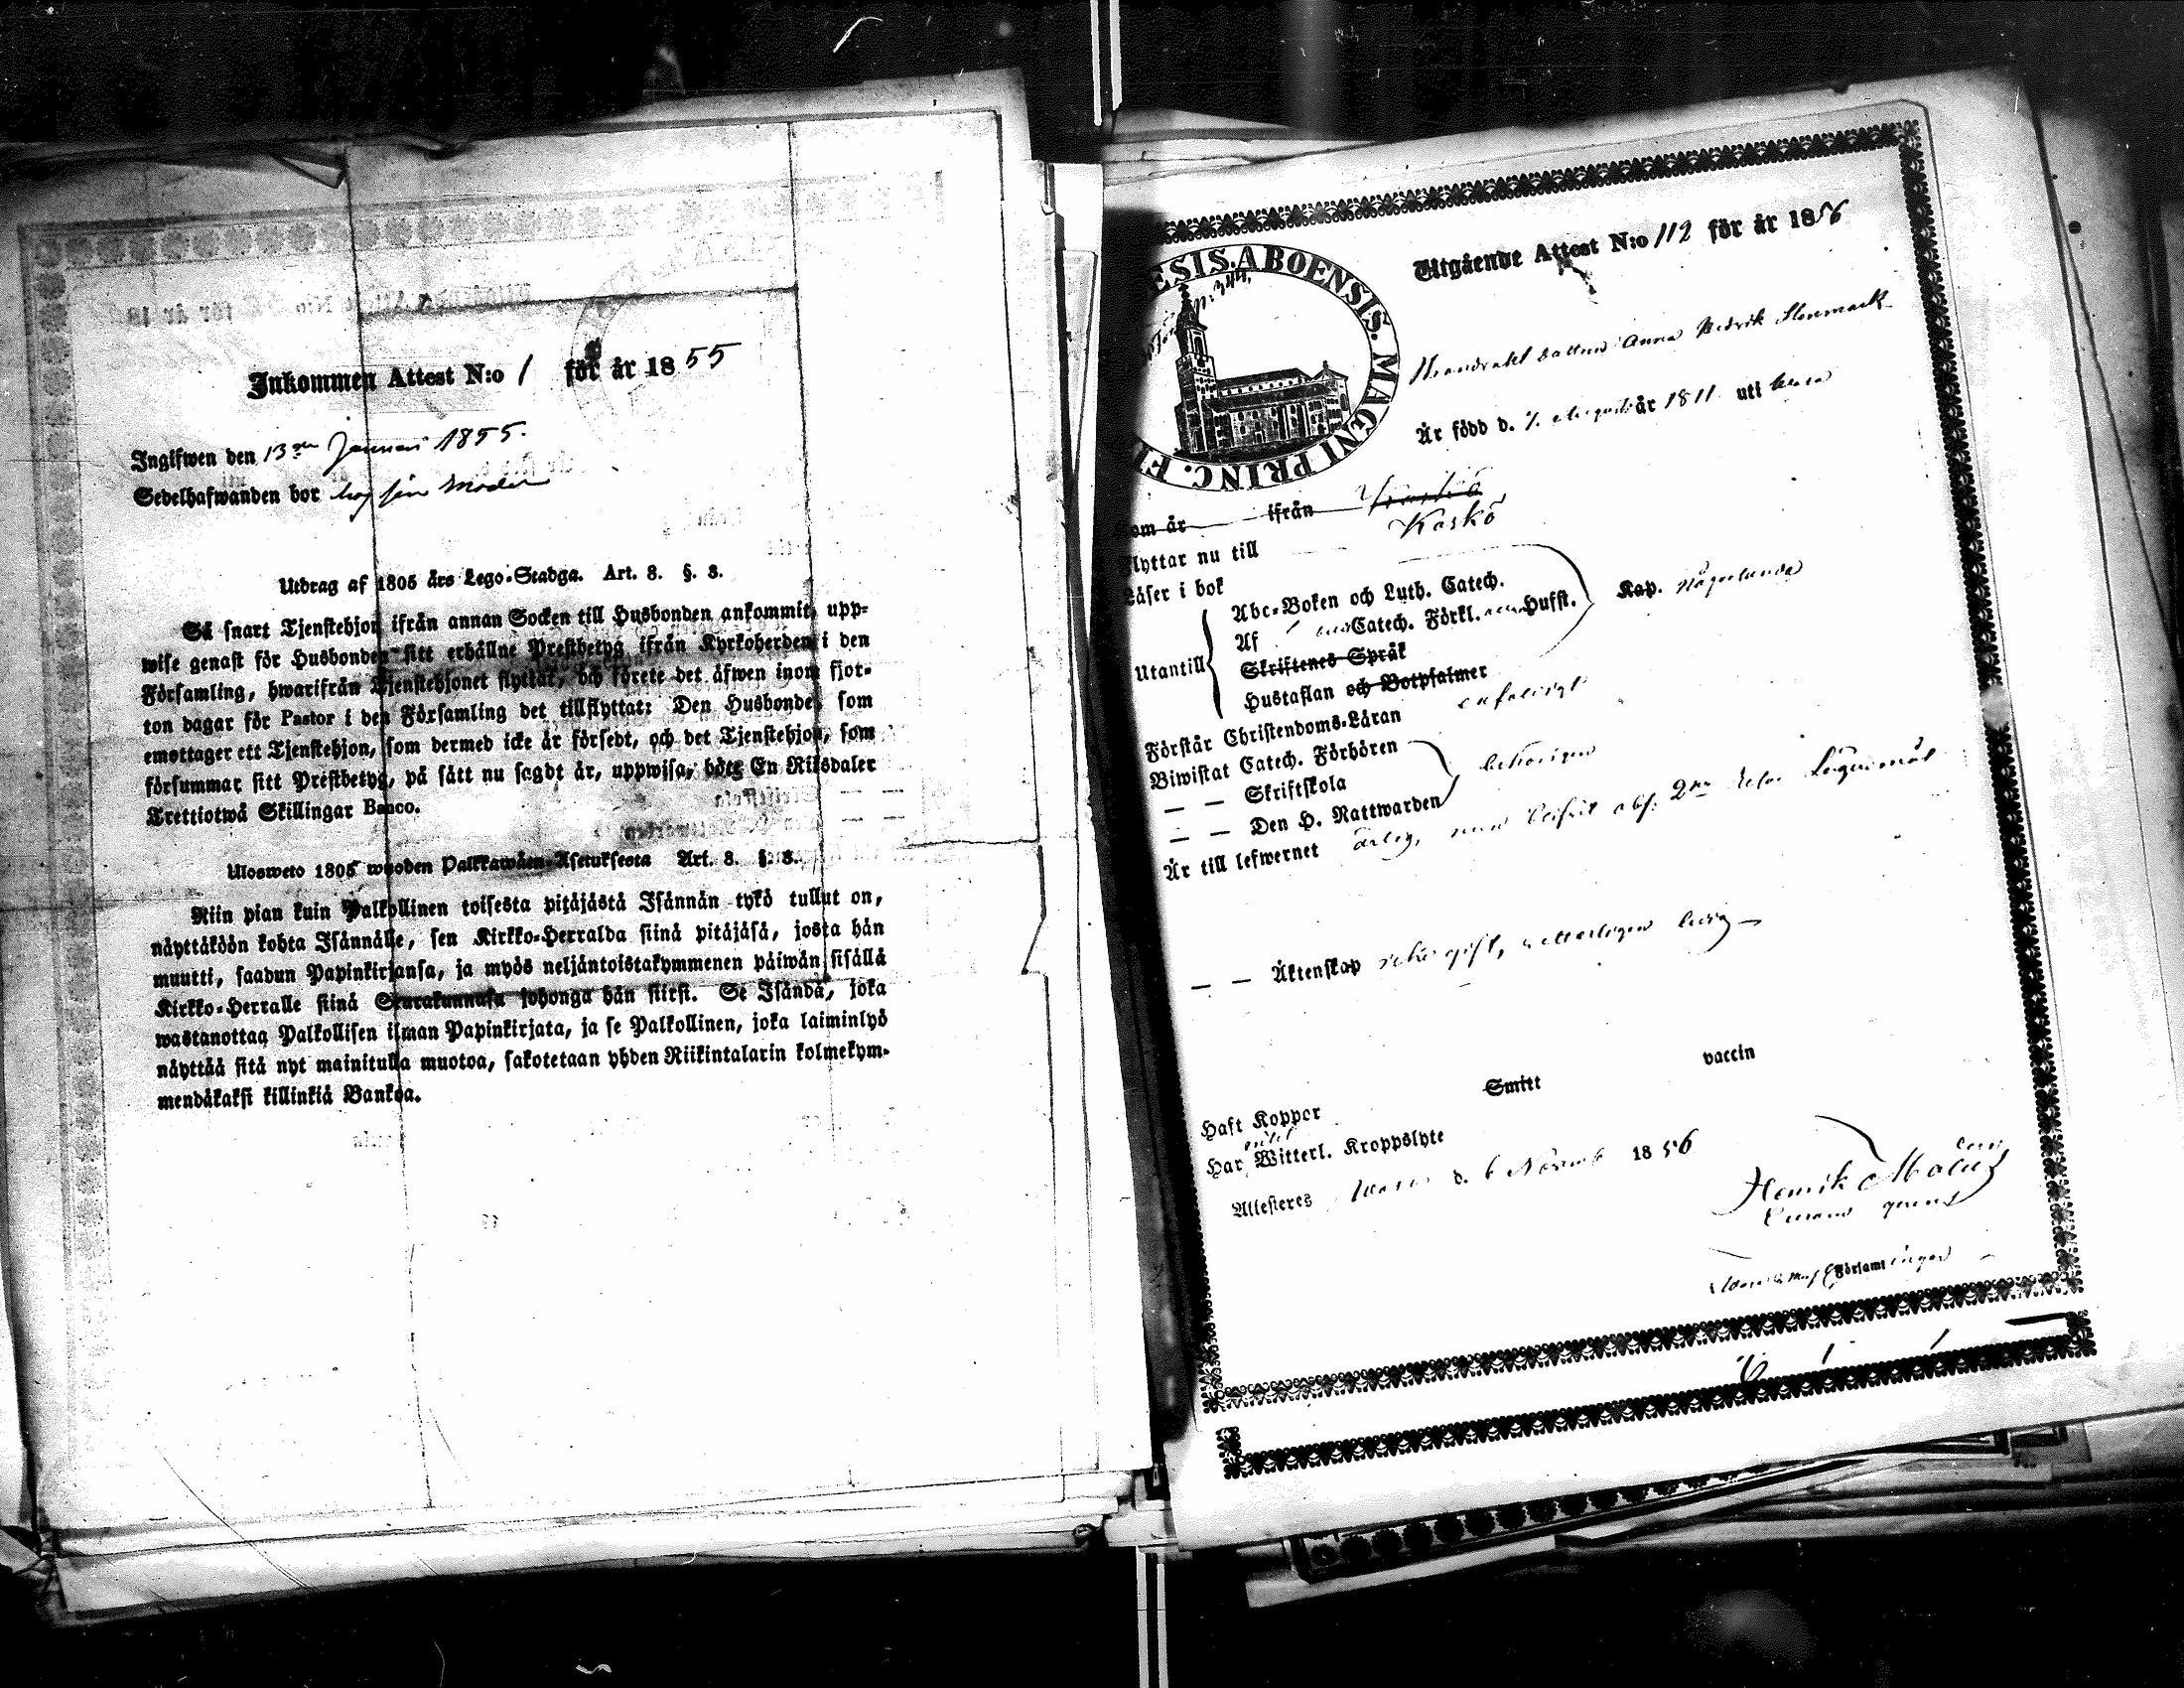 Inkommen Attest N:o 1 för år 1855
Ingifwen den 13de Januari 1855.
Sedelhafwanden bor hos sin Moder
Utdrag af 1805 års Lego-Stadga. Art. 8. §. 3.
Så snart Tjenstehjon ifrån annan Socken till Husbonden ankommit, upp-
wise genast för Husbonden sitt erhållne Prestbetyg ifrån Kyrkoherden i den
Församling, hwarifrån Tjenstehjonet flyttat, och förete det äfwen inom fjor-
ton dagar för Pastor i den Församling det tillflyttat: Den Husbonde, som
emottager ett Tjenstehjon, som dermed icke är försedt, och det Tjenstehjon, som
försummar sitt Prestbetyg, på sätt nu sagdt är, uppwisa, böte En Riksdaler
Trettiotwå Skillingar Banco.
Ulosweto 1805 wuoden Palkkawäen-Asetuksesta Art. 8. §. 3.
Niin pian kuin Palkollinen toisesta pitäjästä Isännän tykö tullut on,
näyttäköön kohta Isännälle, sen Kirkko-Herralda siinä pitäjäsä, josta hän
muutti, saadun Papinkirjansa, ja myös neljäntoistakymmenen päiwän sisällä
Kirkko-Herralle siinä Seurakunnasa johonga hän siirsi. Se Isändä, joka
wastanottaa Palkollisen ilman Papinkirjata, ja se Palkollinen, joka laiminlyö
näyttää sitä nyt mainitulla muotoa, sakotetaan yhden Riikintalarin kolmekym-
mendäkaksi killinkiä Bankoa.
ESIS. ABOENSIS. MAGNI PRINC. FI
Utgående Attest N:o 112 för år 1856
dottren Anna Stenmark
Är född d. 7 Augusti år 1811 uti Wasa
om är ifrån
Flyttar nu till Kaskö
Läser i bok
Utantill
Abc-Boken och Luth. Catech.
Af Catech. Förkl. Huſſt.
Kap. någorlunda
Skriftenes Språk
Hustaflan och Botpsalmer
Förstår Christendoms-Läran enfaldigt
Biwistat Catech. Förhören
— — Skriftskola behörigen
— — Den H. Nattwarden
Är till lefwernet ärlig, men 2ne
— — Äktenskap icke gift, ledig
Haft Kopper Smitt vaccin
Har Witterl. Kroppslyte
Attesteres Wasa d. 6 Novemb 1856
Henrik
Församl